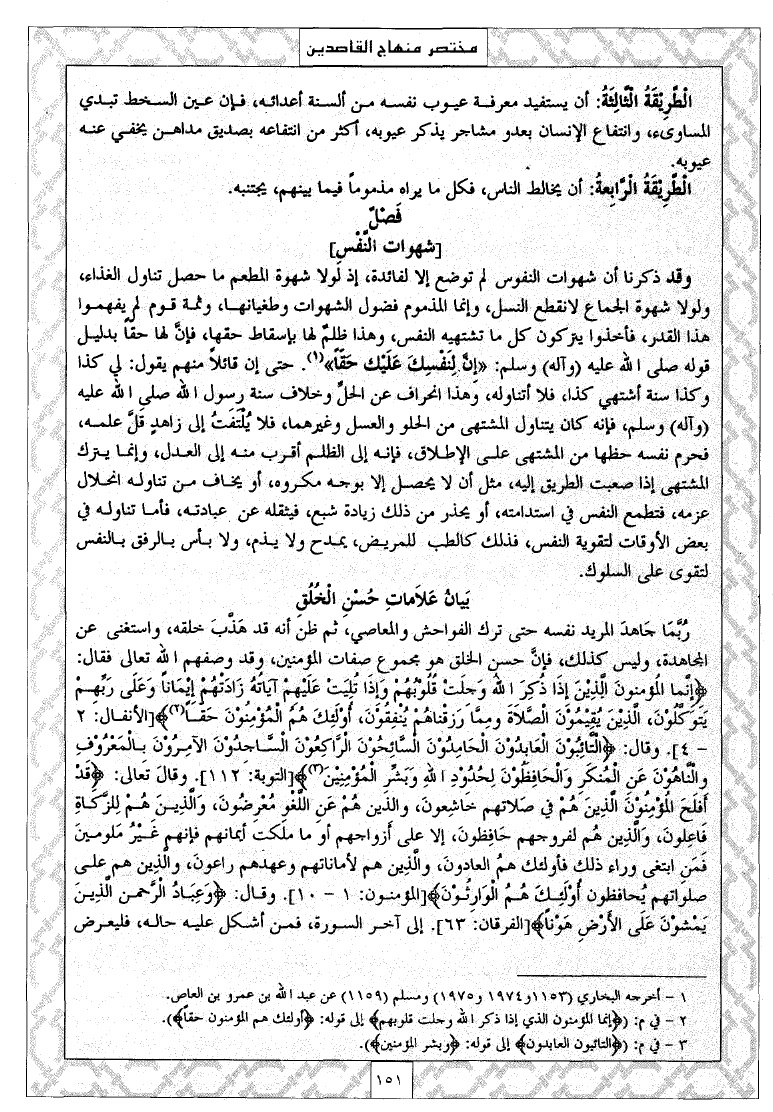 مختصر منهاج القاصدين
الْطَّرِيْقَةُ الْثَّالِثَةُ: أن يستفيد معرفة عيوب نفسه من ألسنة أعدائه، فإن عين السخط تبدي
المساوىء، وانتفاع الإنسان بعدو مشاجر يذكر عيوبه، أكثر من انتفاعه بصديق مداهن يخفي عنه
عيوبه.
الْطَّرِيْقَةُ الْرَّابِعةُ: أن يخالط الناس، فكل ما يراه مذموماً فيما بينهم، يجتنبه.
فَصْلٌ
[شهوات النَّفْسِ]
وقد ذكرنا أن شهوات النفوس لم توضع إلا لفائدة، إذ لولا شهوة المطعم ما حصل تناول الغذاء،
ولولا شهوة الجماع لانقطع النسل، وإنما المذموم فضول الشهوات وطغيانها، وثمة قوم لم يفهموا
هذا القدر، فأخذوا يتركون كل ما تشتهيه النفس، وهذا ظلمٌ لها بإسقاط حقها، فإنَّ لها حقاً بدليل
قوله صلى الله عليه (وآله) وسلم: «إِنَّ لِنَفْسِكَ عَلَيْكَ حَقّاً»(١). حتى إن قائلاً منهم يقول: لي كذا
وكذا سنة أشتهي كذا، فلا أتناوله، وهذا انحراف عن الحلِّ وخلاف سنة رسول الله صلى الله عليه
(وآله) وسلم، فإنه كان يتناول المشتهى من الحلو والعسل وغيرهما، فلا يُلْتَفَتُ إلى زاهدٍ قَلَّ علمه،
فحرم نفسه حظها من المشتهى على الإطلاق، فإنه إلى الظلم أقرب منه إلى العدل، وإنما يترك
المشتهى إذا صعبت الطريق إليه، مثل أن لا يحصل إلا بوجه مكروه، أو يخاف من تناوله انحلال
عزمه، فتطمع النفس في استدامته، أو يحذر من ذلك زيادة شبع، فيثقله عن عبادته، فأما تناوله في
بعض الأوقات لتقوية النفس، فذلك كالطب للمريض، يمدح ولا يذم، ولا بأس بالرفق بالنفس
لتقوى على السلوك.
بَيانُ عَلاَماتِ حُسْنِ الْخُلُقِ
رُبَّمَا جَاهدَ المريد نفسه حتى ترك الفواحش والمعاصي، ثم ظن أنه قد هَذَّبَ خلقه، واستغنى عن
المجاهدة، وليس كذلك، فإنَّ حسن الخلق هو مجموع صفات المؤمنين، وقد وصفهم الله تعالى فقال:
﴿إِنَّما المُؤمنونَ الَّذِيْنَ إذَا ذُكِرَ اللهُ وَجلَتْ قُلُوْبُهُمْ وإِذَا تُلِيَتْ عَلَيْهِمْ آيَاتُهُ زَادَتْهُمْ إِيْمَاناً وَعَلَى رَبِّهِمْ
يَتَوَكَّلُوْنَ، الَّذِيْنَ يُقِيْمُوْنَ الْصَّلاَةَ ومِمَّا رَزَقْنَاهُمْ يُنْفِقُوْنَ، أُوْلَئِكَ هُمُ الْمُؤْمِنُوْنَ حَقّاً(٢)﴾[الأنفال: ٢
– ٤]. وقال: ﴿الْتَّائِبُوْنَ الْعَابِدُوْنَ الْحَامِدُوْنَ الْسَّائِحُوْنَ الْرَّاكِعُوْنَ الْسَّاجِدُوْنَ الآمِرُوْنَ بِالمَعْرُوْفِ
والنَّاهُوْنَ عَنِ المُنْكَرِ وَالْحَافِظُوْنَ لِحُدُوْدِ اللهِ وَبَشِّرِ الْمُؤْمِنِيْنَ(٣)﴾[التوبة: ١١٢]. وقالَ تعالى: ﴿قَدْ
أَفلَحَ المُؤْمِنُوْنَ الَّذِينَ هُمْ في صَلاتهم خاشِعونَ، والذين هُمْ عَنِ اللَّغْوِ مُعْرِضُونَ، وَالَّذِيْنَ هُمْ لِلزَّكَاةِ
فَاعِلونَ، وَالَّذِين هُم لفروجهم حَافِظونَ، إلا على أزواجهم أو ما ملَكت أيمانهم فإنهم غَيْرُ مَلومينَ
فَمَن ابتغى وراء ذلك فأولئك همُ العادون، والَّذين هم لأماناتهم وعهدهم راعونَ، والَّذين هم على
صلواتهم يُحافظون أُوْلَئِكَ هُمُ الْوَارِثُوْنَ﴾[المؤمنون: ١ – ١٠]. وقال: ﴿وَعِبَادُ الْرَّحمنِ الَّذِيْنَ
يَمْشونَ عَلَى الأَرْضِ هَوْناً﴾[الفرقان: ٦٣]. إلى آخر السورة، فمن أشكل عليه حاله، فليعرض
١ – أخرجه البخاري (١١٥٣و ١٩٧٤ و١٩٧٥) ومسلم (١١٥٩) عن عبد الله بن عمرو بن العاص.
٢ – في م: (﴿إنما المؤمنون الذي إذا ذكر الله وجلت قلوبهم﴾ إلى قوله: ﴿أولئك هم المؤمنون حقاً﴾).
٣ – في م: (﴿التائبون العابدون﴾ إلى قوله: ﴿وبشر المؤمنين﴾).
١٥١